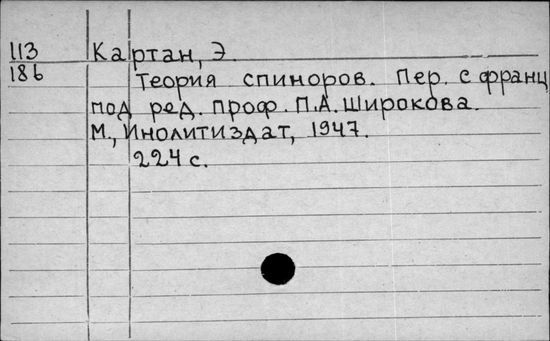 113 Картан, Э.
186 Теория спиноров. Пер. с франц
под ред. проф. П.А. Широкова.
М., Инолитиздат, 1947.
224 с.